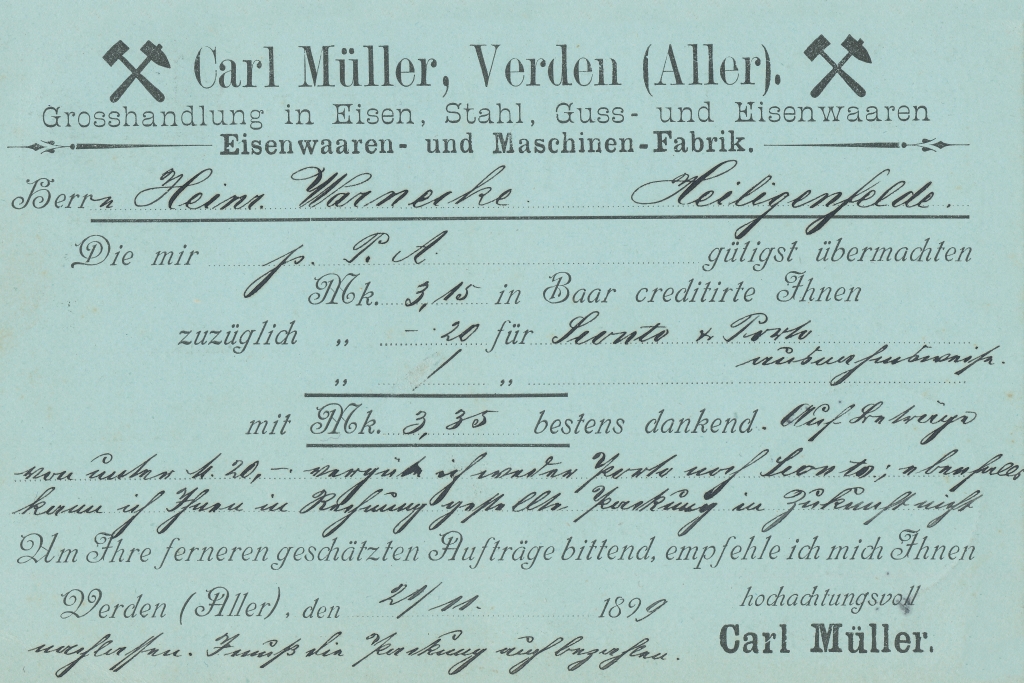 Carl Müller, Verden (Aller).
Grosshandlung in Eisen, Stahl, Guss- und Eisenwaaren
Eisenwaaren- und Maschinen-Fabrik.
Herrn Heinr. Warnecke Heiligenfelde.
Die mir p. P. A. gütigst übermachten
Mk. 3,15 in Baar creditirte Ihnen
zuzüglich „ -.20 für Sconto & Porto
ausnahmsweise.
„ / „
mit Mk. 3,35 bestens dankend. Auf Beträge
von unter M. 20,- vergüte ich weder Porto noch Sconto; ebenfalls
kann ich Ihnen in Rechnung gestellte Packung in Zukunft nicht
Um Ihre ferneren geschätzten Aufträge bittend, empfehle ich mich Ihnen
Verden (Aller), den 21/11. 1899 hochachtungsvoll
nachlassen. I muß die Packung auch bezahlen. Carl Müller.